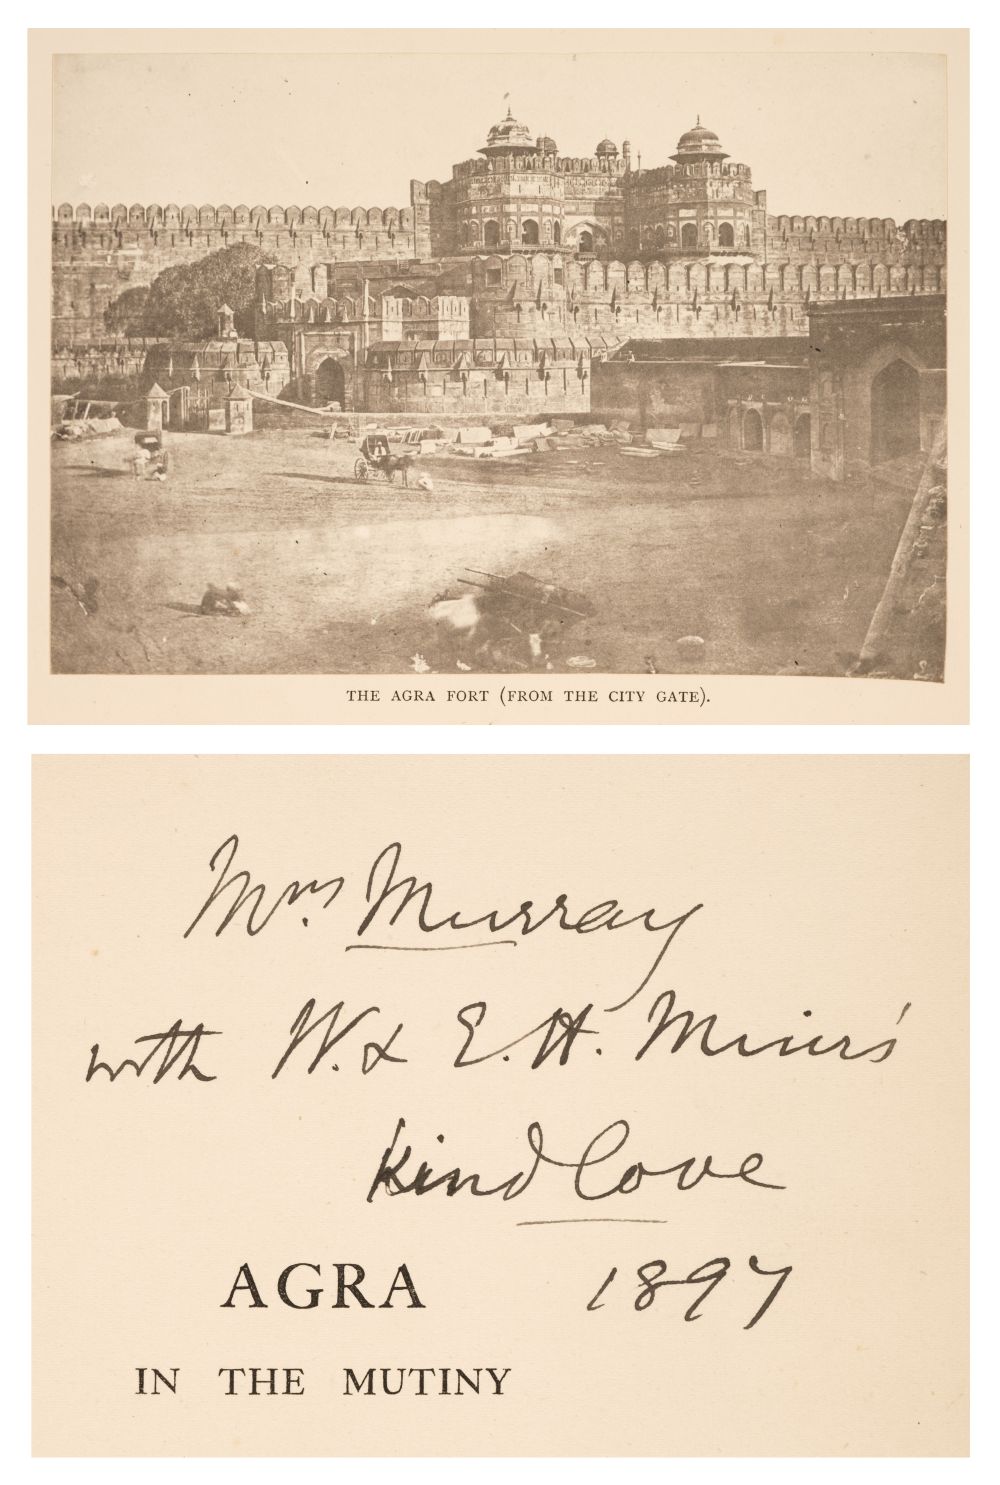 THE AGRA FORT (FROM THE CITY GATE).
Mrs. Murray
with W. & E. H. Muir's
Kind Love
1897
AGRA
IN THE MUTINY